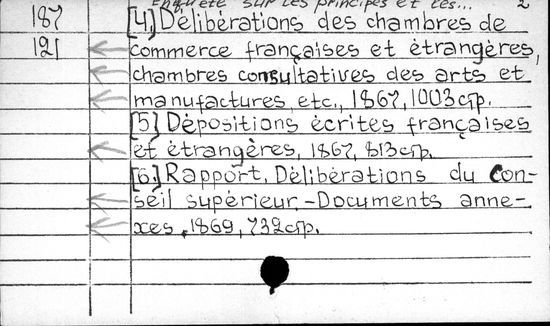 Enquête sur les principes et les... 2
187 [4.] Délibérations des chambres de
121 commerce françaises et étrangères,
chambres consultatives des arts et
manufactures, etc., 1867, 1003 стр.
[5] Dépositions écrites françaises
et étrangères, 1867, 813 стр.
[6.] Rapport. Délibérations du Con-
seil supérieur. - Documents anne-
xes, 1869, 732 стр.